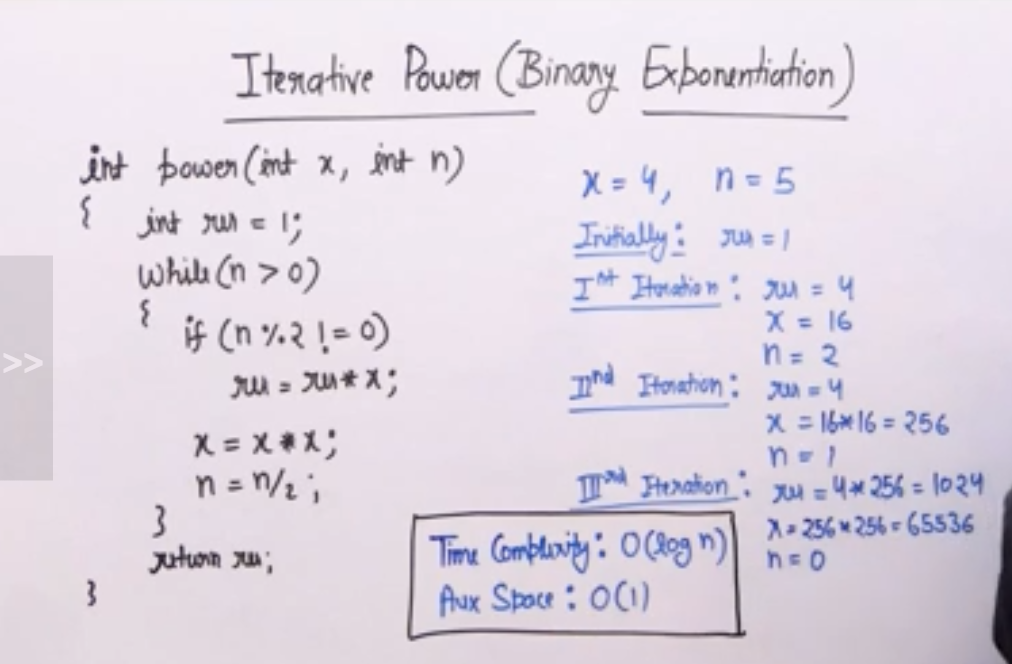 Iterative Power (Binary Exponentiation)
int power(int x, int n)
{
int res = 1;
while(n > 0)
{
if (n % 2 != 0)
res = res * x;
x = x * x;
n = n/2;
}
return res;
}
x = 4, n = 5
Initially: res = 1
Ist Iteration: res = 4
x = 16
n = 2
IInd Iteration: res = 4
x = 16*16 = 256
n = 1
IIIrd Iteration: res = 4*256 = 1024
x = 256*256 = 65536
n = 0
Time Complexity: O(log n)
Aux Space: O(1)
>>